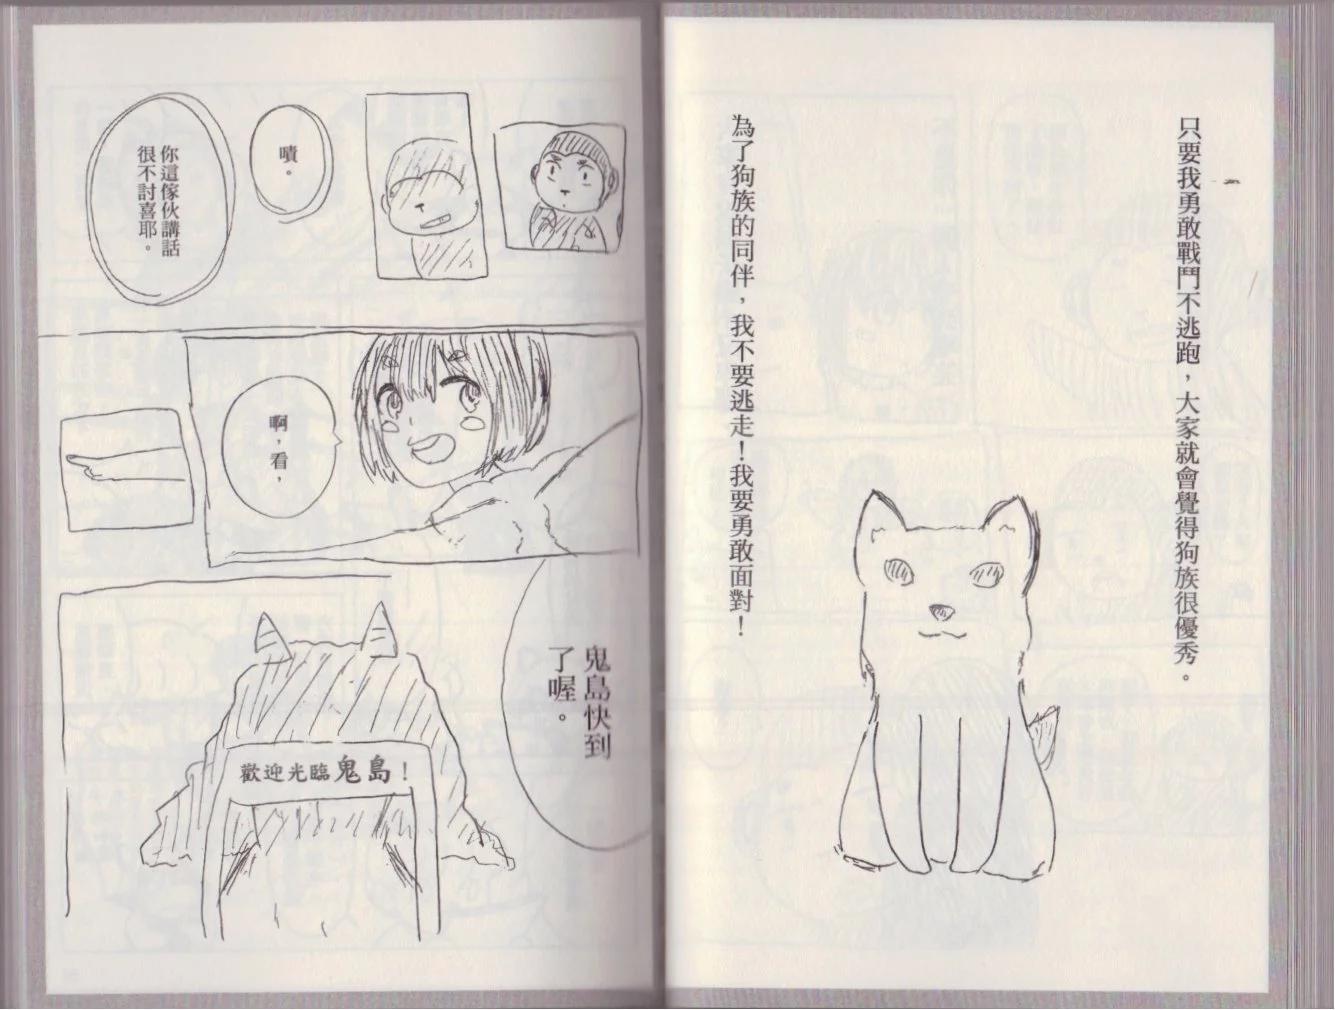 只要我勇敢戰鬥不逃跑，大家就會覺得狗族很優秀。
為了狗族的同伴，我不要逃走！我要勇敢面對！
嘖。
你這傢伙講話
很不討喜耶。
啊，看，
鬼島快到
了喔。
歡迎光臨鬼島！